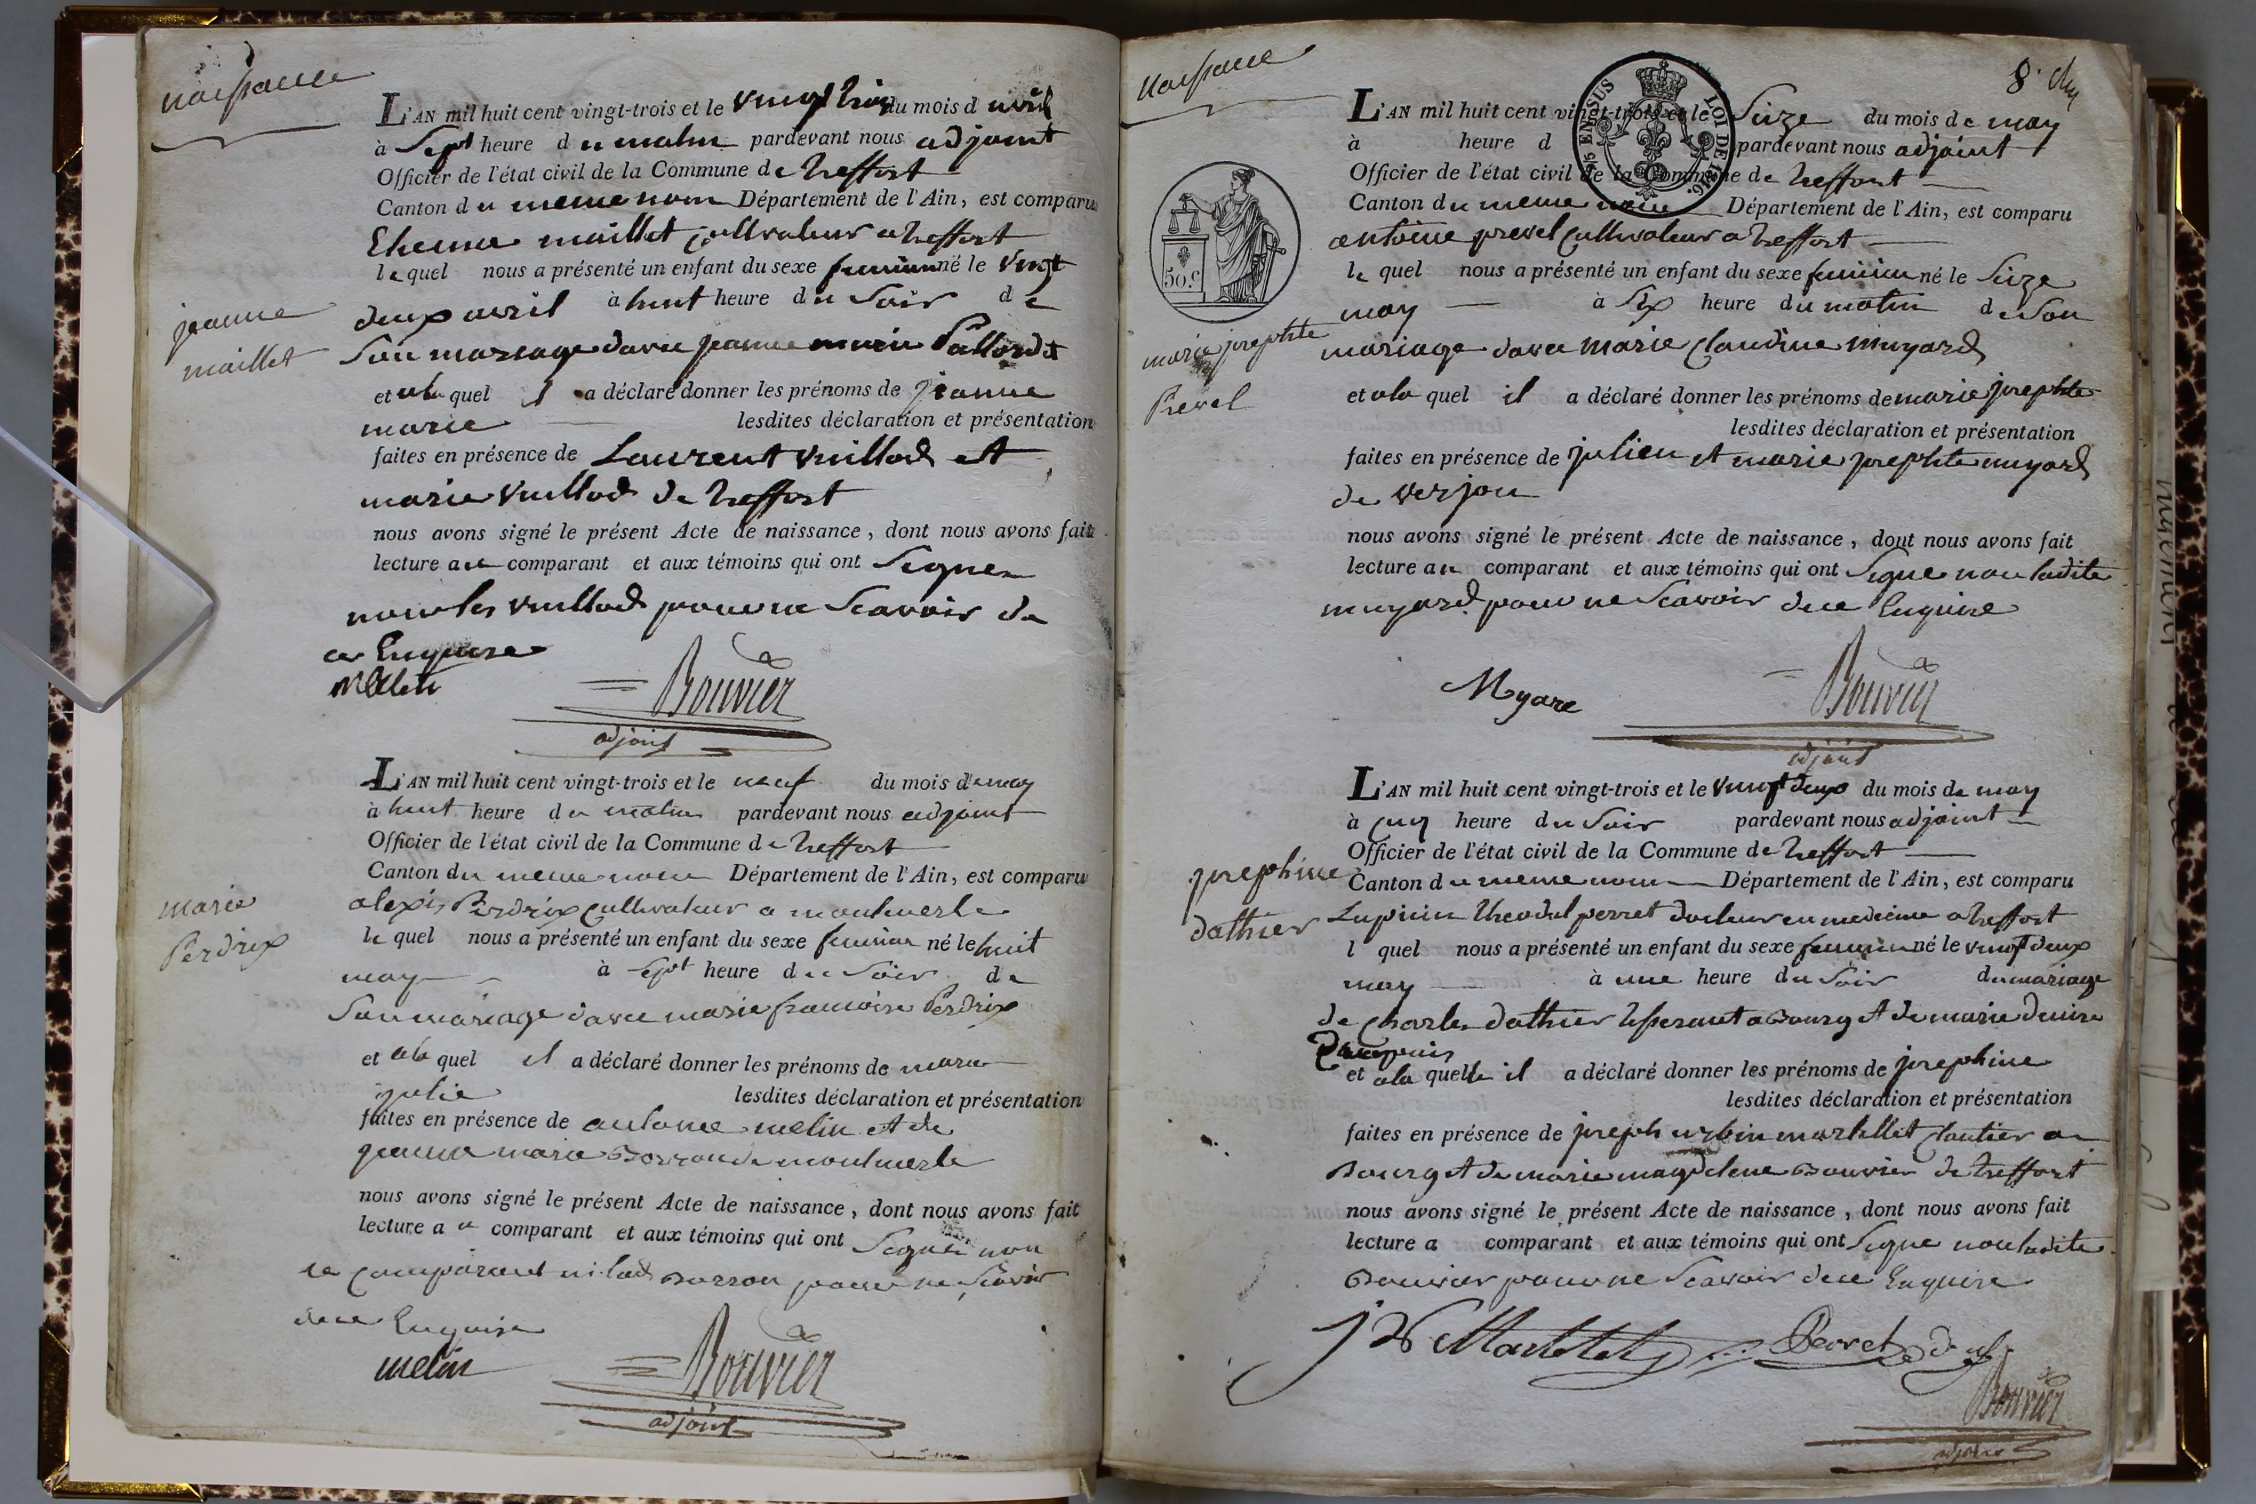 naissance
L'AN mil huit cent vingt-trois et le vingt trois du mois d avril
à Sept heure du matin pardevant nous adjoint
Officier de l'état civil de la Commune de treffort
Canton du meme nom Département de l'Ain, est comparu
Etienne maillet cultivateur a treffort
le quel nous a présenté un enfant du sexe feminin né le vingt
deux avril à huit heure du Soir de
Son mariage davec jeanne marie
jeanne
maillet
et ala quel il a déclaré donner les prénoms de jeanne
marie lesdites déclaration et présentation
faites en présence de Laurent vuillod et
marie vuillod de treffort
nous avons signé le présent Acte de naissance, dont nous avons fait
lecture au comparant et aux témoins qui ont Signer
non les vuillod pour ne Scavoir de
ce Enquise
Bouvier
adjoint
L'AN mil huit cent vingt-trois et le neuf du mois de may
à huit heure du matin pardevant nous adjoint
Officier de l'état civil de la Commune de treffort
Canton du meme nom Département de l'Ain, est comparu
marie
Perdrix
alexis Perdrix cultivateur a montmerle
le quel nous a présenté un enfant du sexe feminin né le huit
may à Sept heure du Soir de
Son mariage davec marie francoise Perdrix
et ala quel il a déclaré donner les prénoms de marie
julie lesdites déclaration et présentation
faites en présence de antoine melin et de
jeanne marie Borron de montmerle
nous avons signé le présent Acte de naissance, dont nous avons fait
lecture au comparant et aux témoins qui ont Signer non
le comparant ni lad Borron pour ne Scavoir
dece Enquise
melin
Bouvier
adjoint
naissance
8
L'AN mil huit cent vingt-trois et le Seize du mois de may
à heure d pardevant nous adjoint
Officier de l'état civil de la Commune de treffort
Canton du meme nom Département de l'Ain, est comparu
antoine prevel cultivateur a treffort
le quel nous a présenté un enfant du sexe feminin né le Seize
may à Six heure du matin de Son
mariage davec marie claudine muyard
EN SUS
LOI DE 1816.
50.c
marie josephte
Prevel
et ala quel il a déclaré donner les prénoms de marie josephte
lesdites déclaration et présentation
faites en présence de julien et marie josephte muyard
de verjon
nous avons signé le présent Acte de naissance, dont nous avons fait
lecture au comparant et aux témoins qui ont Signe non ladite
muyard pour ne Scavoir dece Enquise
Myare
Bouvier
adjoint
L'AN mil huit cent vingt-trois et le vingt deux du mois de may
à cinq heure du Soir pardevant nous adjoint
Officier de l'état civil de la Commune de treffort
Canton du meme nom Département de l'Ain, est comparu
josephine
dathier
Lupicin theodul perret docteur en medecine a treffort
l quel nous a présenté un enfant du sexe feminin né le vingt deux
may à une heure du Soir du mariage
de charles dathier a Bourg et de marie denise
et ala quelle il a déclaré donner les prénoms de josephine
lesdites déclaration et présentation
faites en présence de joseph urbin martellet cloutier a
Bourg et de marie magdelene Bouvier de treffort
nous avons signé le présent Acte de naissance, dont nous avons fait
lecture a comparant et aux témoins qui ont Signe non ladite
Bouvier pour ne Scavoir dece Enquise
Perret
Bouvier
adjoint